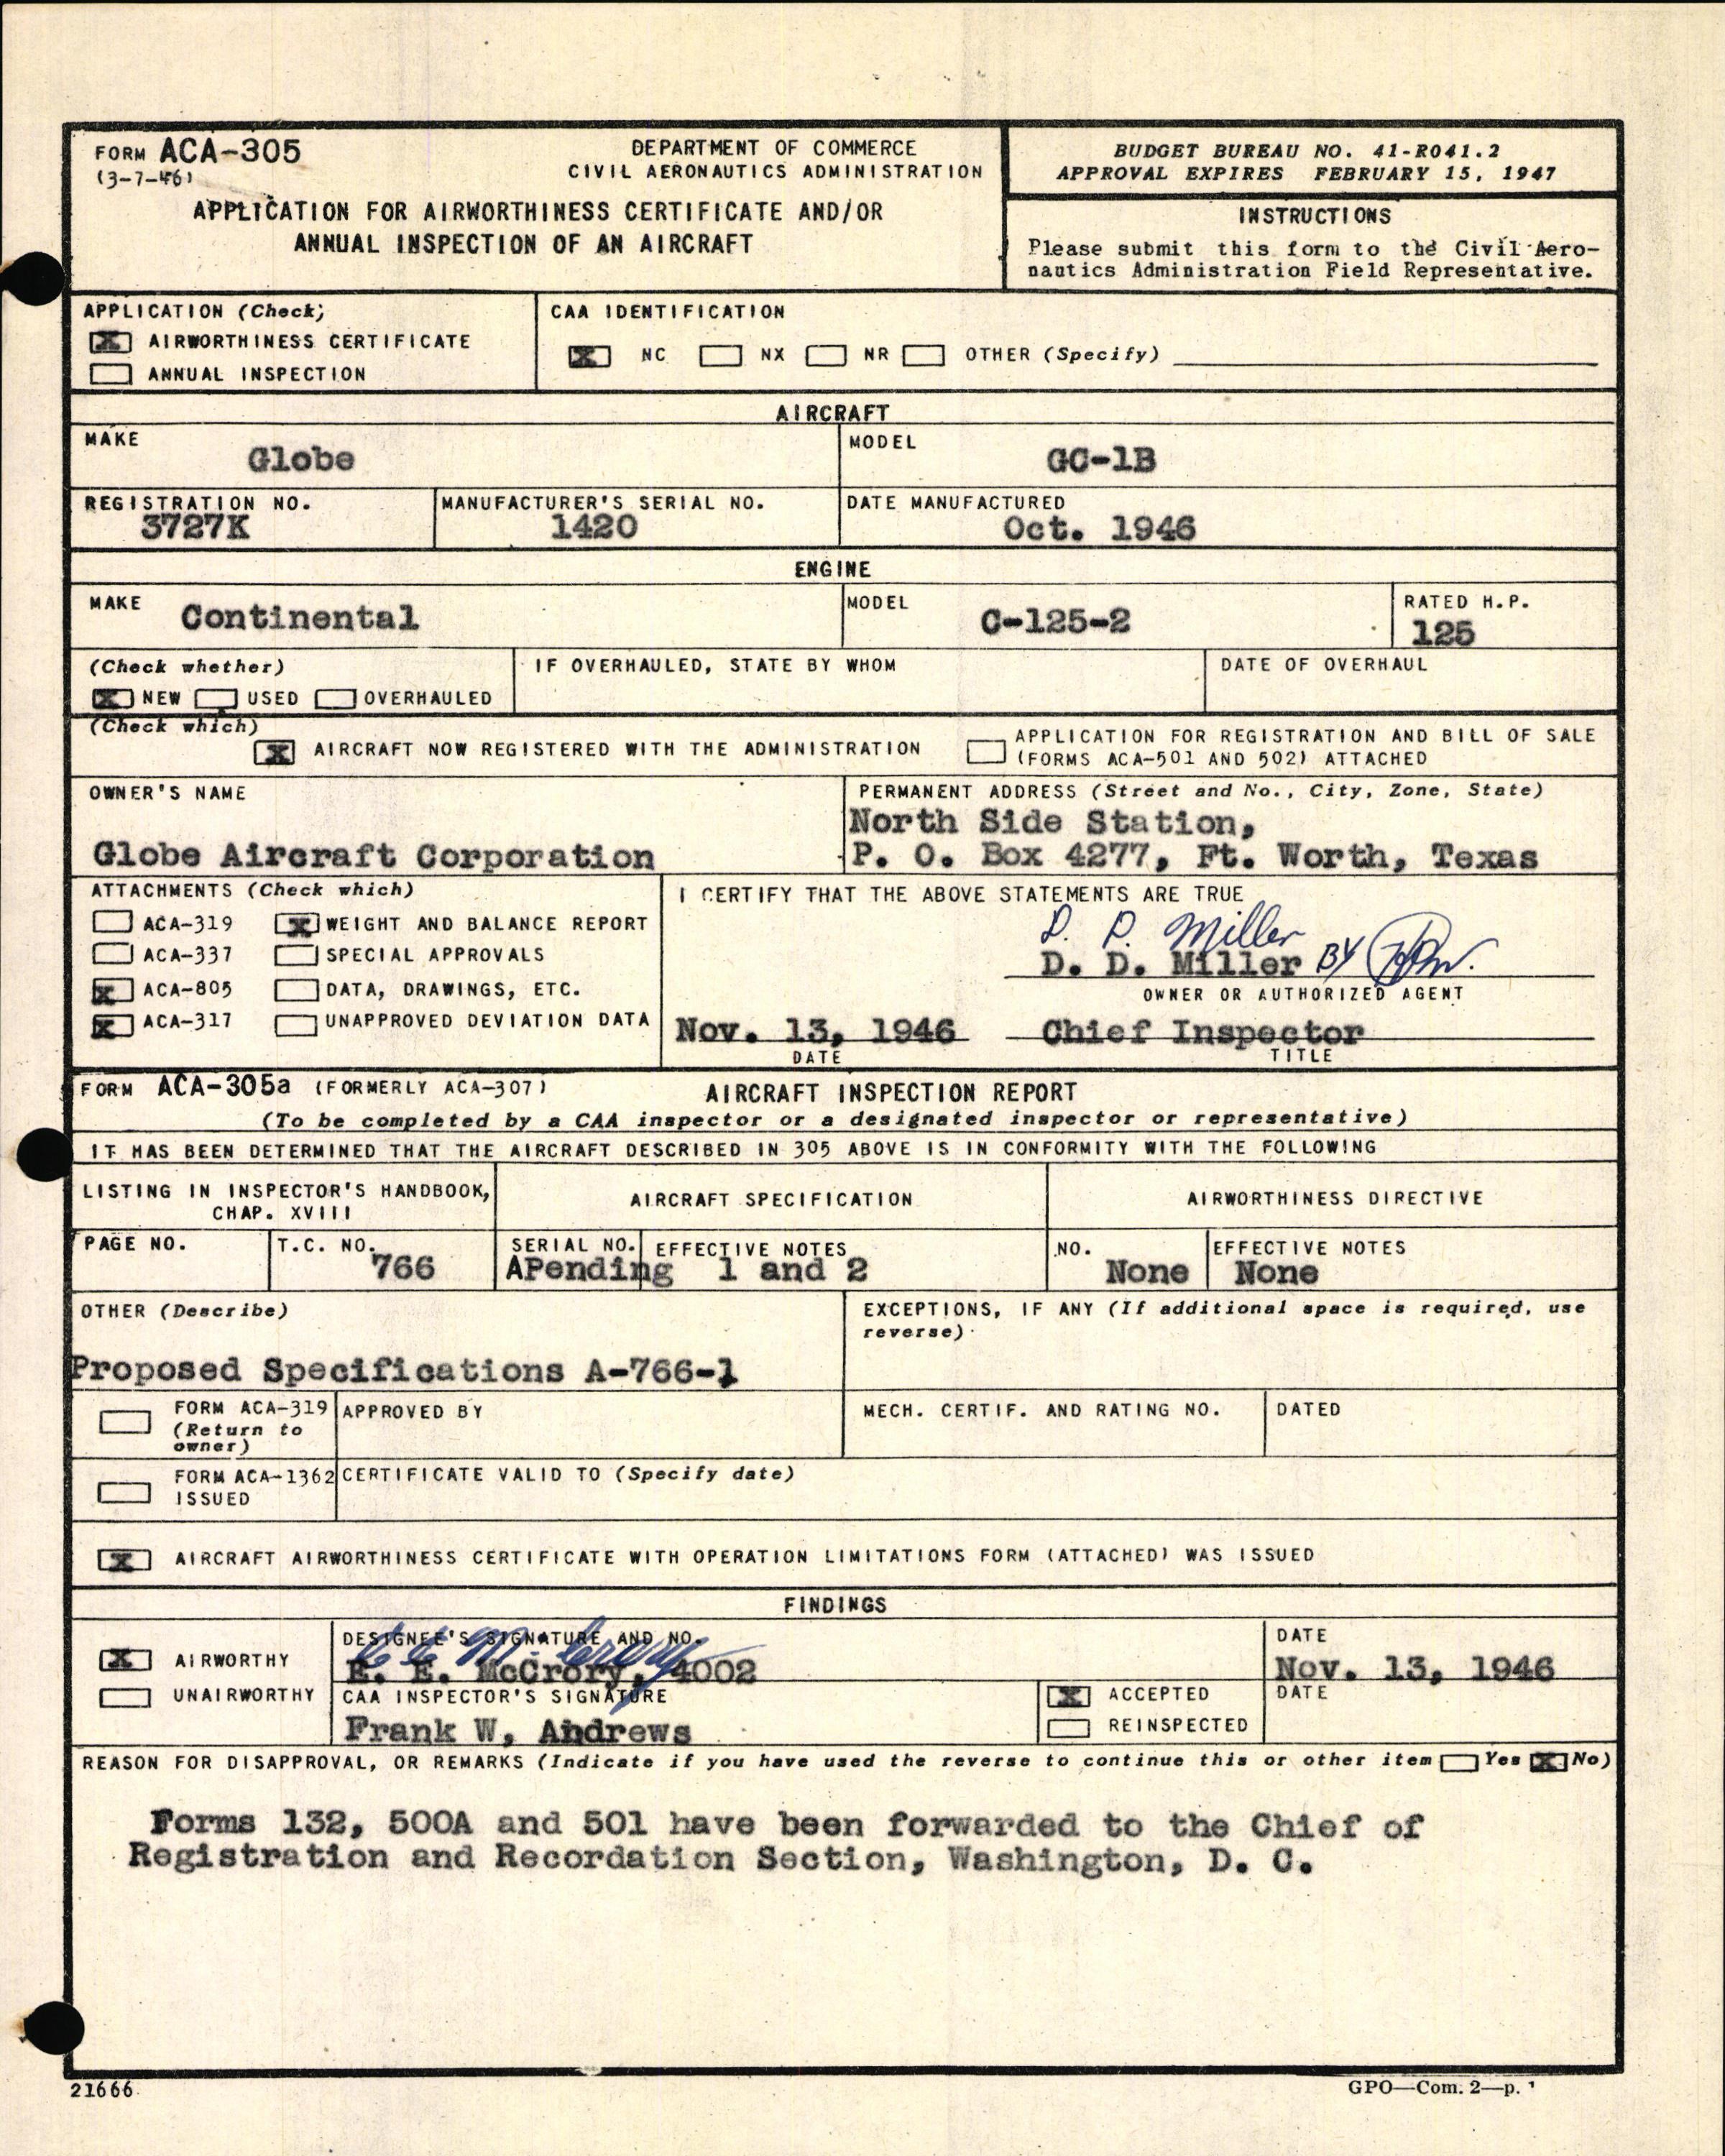 FORM ACA-305
(3-7-46)
DEPARTMENT OF COMMERCE
CIVIL AERONAUTICS ADMINISTRATION
APPLICATION FOR AIRWORTHINESS CERTIFICATE AND/OR
ANNUAL INSPECTION OF AN AIRCRAFT
BUDGET BUREAU NO. 41-R041.2
APPROVAL EXPIRES FEBRUARY 15, 1947
INSTRUCTIONS
Please submit this form to the Civil Aero-
nautics Administration Field Representative.
APPLICATION (Check)
X AIRWORTHINESS CERTIFICATE
ANNUAL INSPECTION
CAA IDENTIFICATION
X NC NX NR OTHER (Specify)
AIRCRAFT
MAKE
Globe
MODEL
GC-1B
REGISTRATION NO.
3727K
MANUFACTURER'S SERIAL NO.
1420
DATE MANUFACTURED
Oct. 1946
ENGINE
MAKE
Continental
MODEL
C-125-2
RATED H.P.
125
(Check whether)
X NEW USED OVERHAULED
IF OVERHAULED, STATE BY WHOM
DATE OF OVERHAUL
(Check which)
X AIRCRAFT NOW REGISTERED WITH THE ADMINISTRATION
APPLICATION FOR REGISTRATION AND BILL OF SALE
(FORMS ACA-501 AND 502) ATTACHED
OWNER'S NAME
Globe Aircraft Corporation
PERMANENT ADDRESS (Street and No., City, Zone, State)
North Side Station,
P. O. Box 4277, Ft. Worth, Texas
ATTACHMENTS (Check which)
ACA-319 X WEIGHT AND BALANCE REPORT
ACA-337 SPECIAL APPROVALS
X ACA-805 DATA, DRAWINGS, ETC.
X ACA-317 UNAPPROVED DEVIATION DATA
I CERTIFY THAT THE ABOVE STATEMENTS ARE TRUE
D. D. Miller
D. D. Miller BY
OWNER OR AUTHORIZED AGENT
Nov. 13, 1946 Chief Inspector
DATE TITLE
FORM ACA-305a (FORMERLY ACA-307) AIRCRAFT INSPECTION REPORT
(To be completed by a CAA inspector or a designated inspector or representative)
IT HAS BEEN DETERMINED THAT THE AIRCRAFT DESCRIBED IN 305 ABOVE IS IN CONFORMITY WITH THE FOLLOWING
LISTING IN INSPECTOR'S HANDBOOK,
CHAP. XVIII
AIRCRAFT SPECIFICATION
AIRWORTHINESS DIRECTIVE
PAGE NO.
T.C. NO.
766
SERIAL NO.
APending
EFFECTIVE NOTES
1 and 2
NO.
None
EFFECTIVE NOTES
None
OTHER (Describe)
Proposed Specifications A-766-1
EXCEPTIONS, IF ANY (If additional space is required, use
reverse)
FORM ACA-319
(Return to
owner)
APPROVED BY
MECH. CERTIF. AND RATING NO.
DATED
FORM ACA-1362
ISSUED
CERTIFICATE VALID TO (Specify date)
X AIRCRAFT AIRWORTHINESS CERTIFICATE WITH OPERATION LIMITATIONS FORM (ATTACHED) WAS ISSUED
FINDINGS
X AIRWORTHY
UNAIRWORTHY
DESIGNEE'S SIGNATURE AND NO.
E E McCrory
E. E. McCrory, 4002
DATE
Nov. 13, 1946
CAA INSPECTOR'S SIGNATURE
Frank W. Andrews
X ACCEPTED
REINSPECTED
DATE
REASON FOR DISAPPROVAL, OR REMARKS (Indicate if you have used the reverse to continue this or other item Yes X No)
Forms 132, 500A and 501 have been forwarded to the Chief of
Registration and Recordation Section, Washington, D. C.
21666
GPO—Com. 2—p.